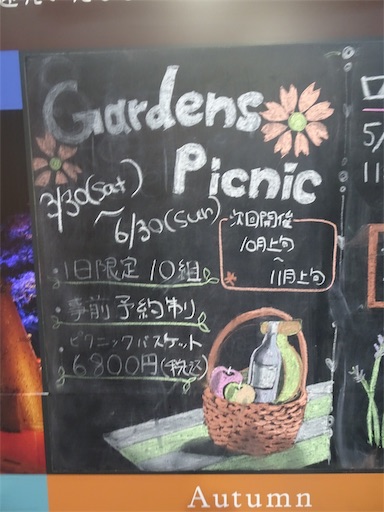 Gardens
Picnic
3/30(Sat)
~
6/30(Sun)
次回開催
10月上旬
~
11月上旬
・1日限定 10組
・事前予約制
・ピクニックバスケット
6800円(税込)
5/
Autumn